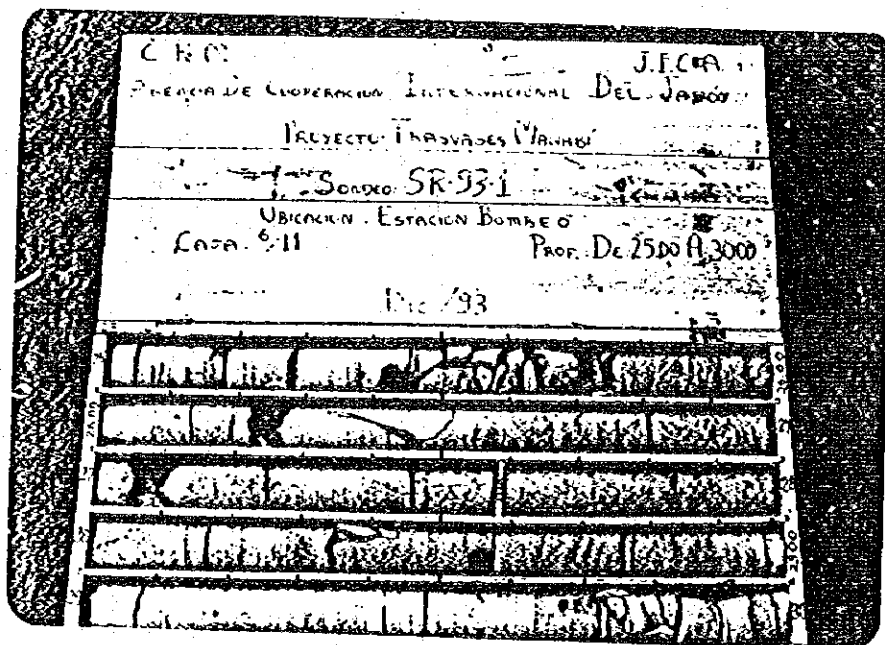 C R M J.I.C.A.
AGENCIA DE COOPERACION INTERNACIONAL DEL JAPÓN
PROYECTO TRASVASES MANABÍ
SONDEO: SR-93-1
UBICACION: ESTACION BOMBEO
CAJA: 6/11 PROF. DE 25.00 A 30.00
DIC /93
26.00
26.00